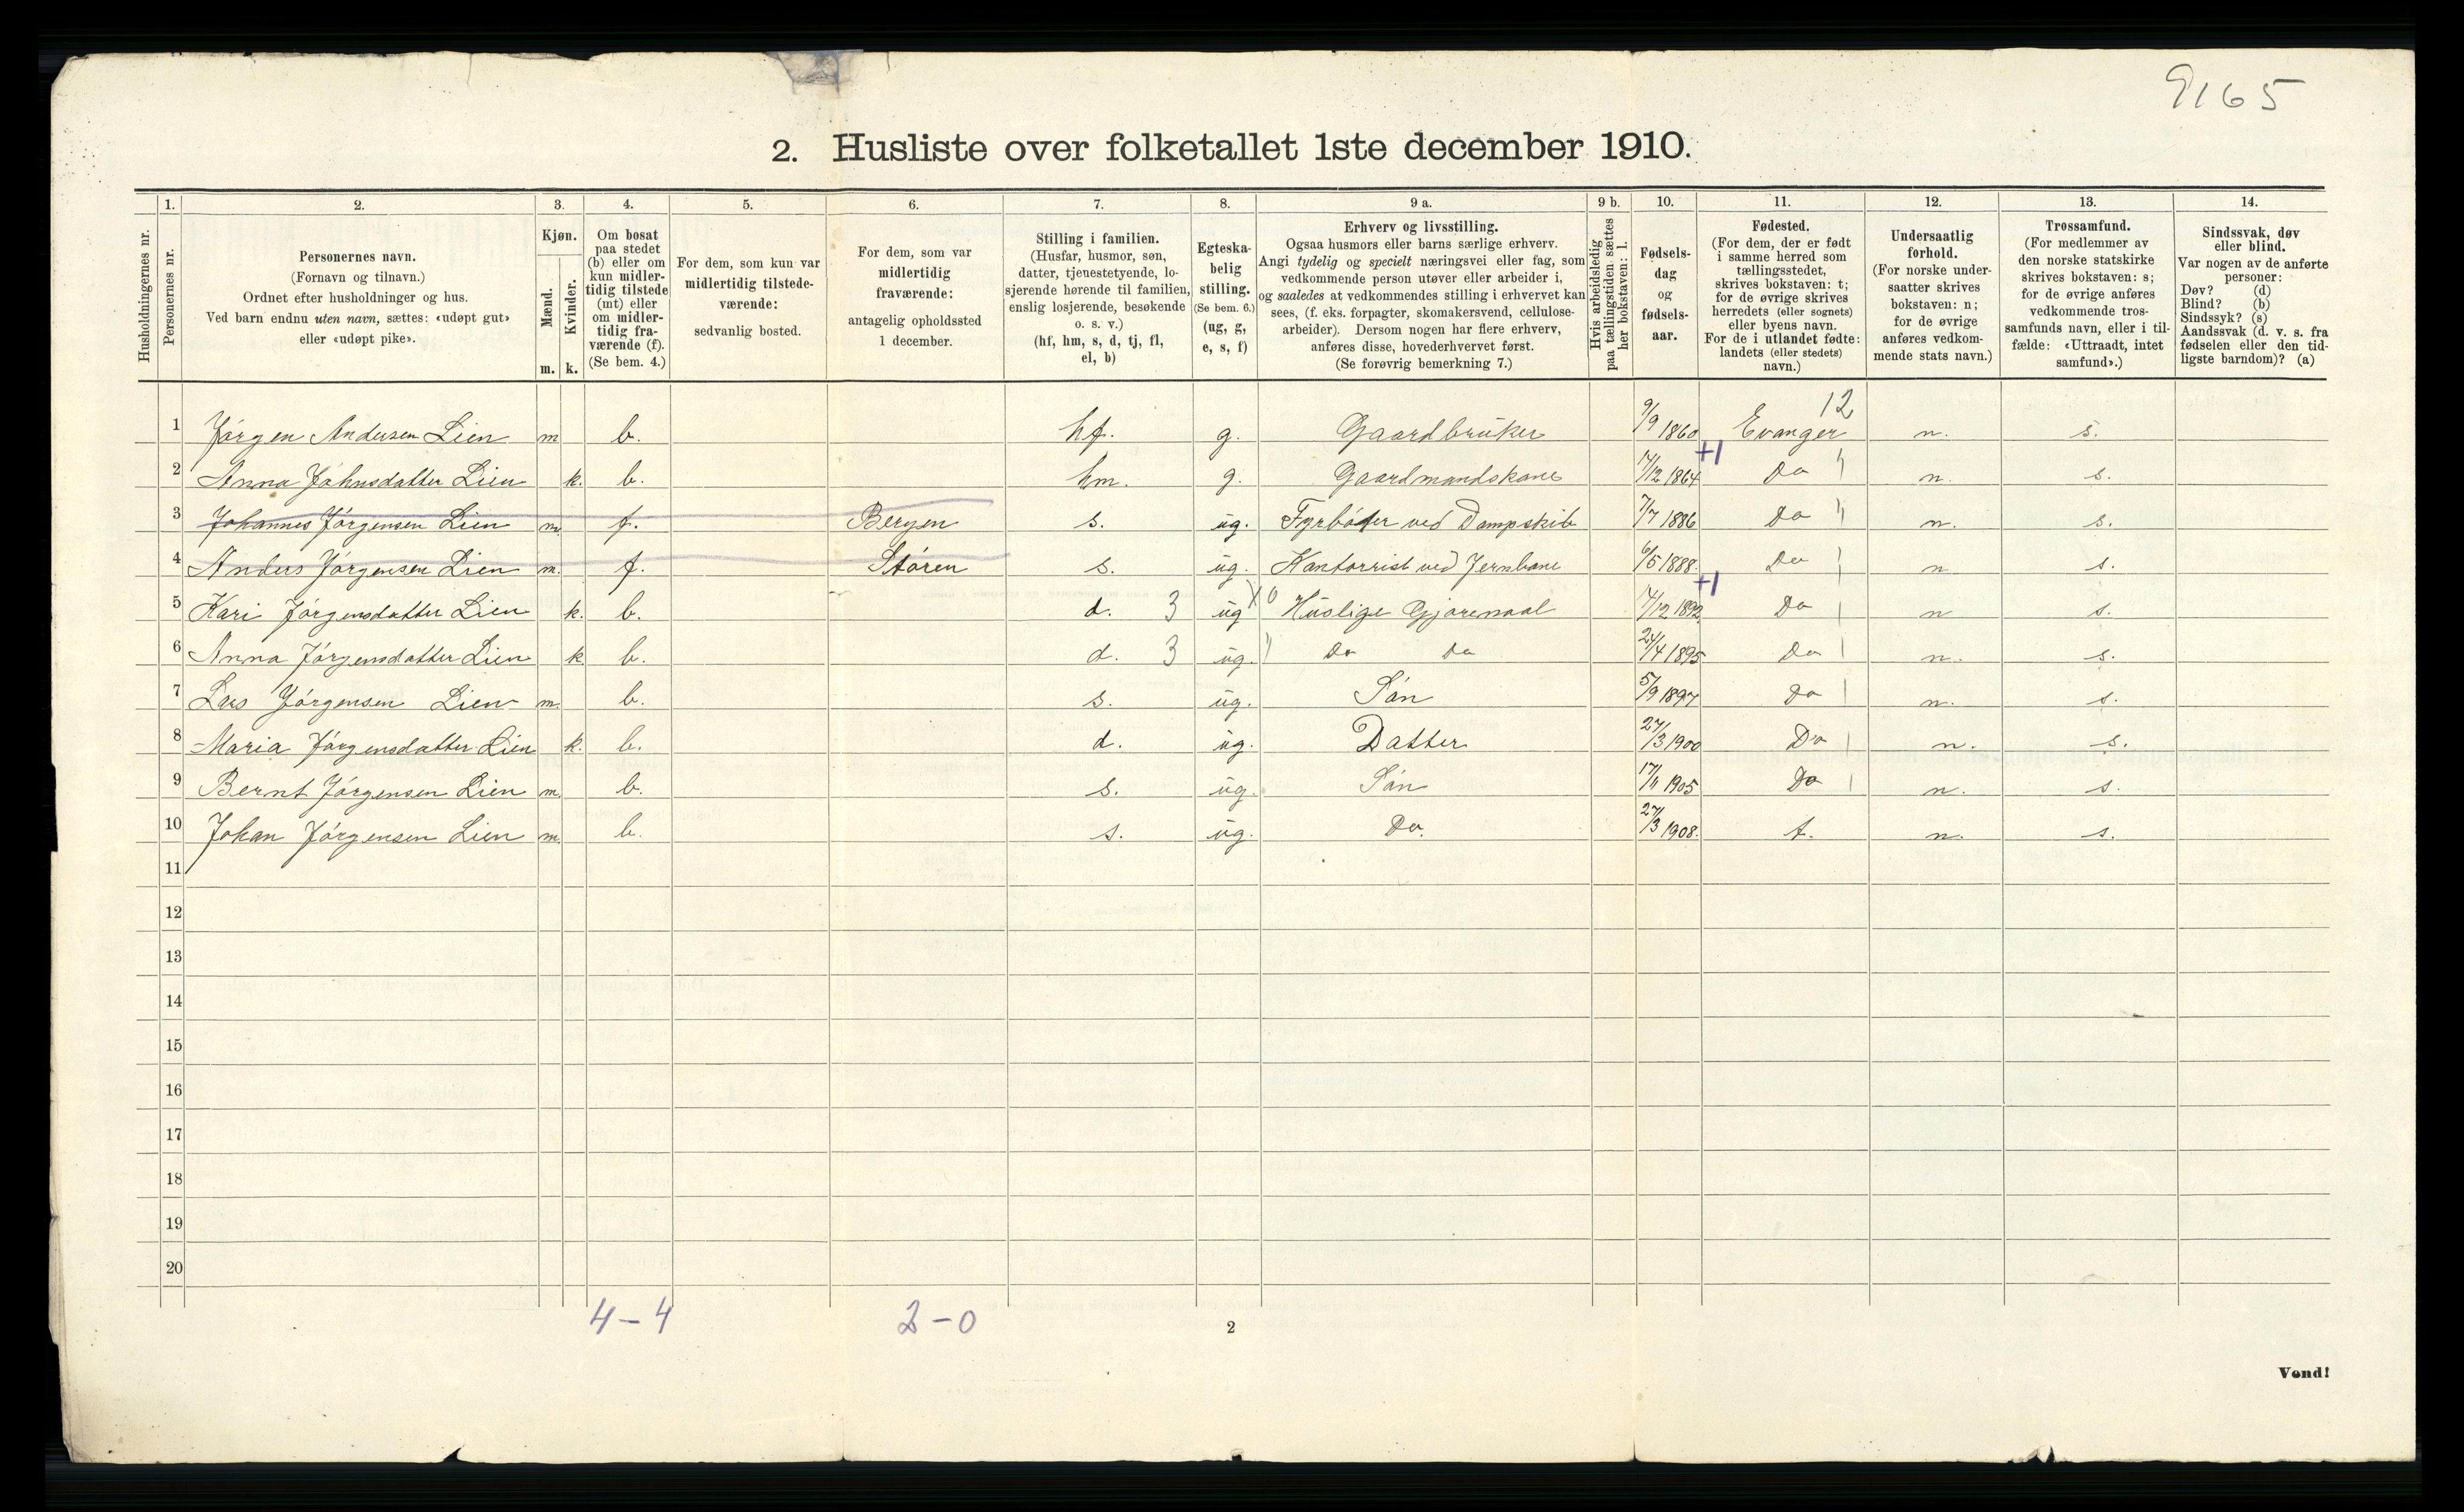 9165
2. Husliste over folketallet 1ste december 1910.
Husholdningernes nr.
1.
Personernes nr.
2.
Personernes navn.
(Fornavn og tilnavn.)
Ordnet efter husholdninger og hus.
Ved barn endnu uten navn, sættes: «udøpt gut»
eller «udøpt pike».
3.
Kjøn.
Mænd.
Kvinder.
m. k.
4.
Om bosat
paa stedet
(b) eller om
kun midler-
tidig tilstede
(mt) eller
om midler-
tidig fra-
værende (f).
(Se bem. 4.)
5.
For dem, som kun var
midlertidig tilstede-
værende:
sedvanlig bosted.
6.
For dem, som var
midlertidig
fraværende:
antagelig opholdssted
1 december.
7.
Stilling i familien.
(Husfar, husmor, søn,
datter, tjenestetyende, lo-
sjerende hørende til familien,
enslig losjerende, besøkende
o. s. v.)
(hf, hm, s, d, tj, fl,
el, b)
8.
Egteska-
belig
stilling.
(Se bem. 6.)
(ug, g,
e, s, f)
9 a.
Erhverv og livsstilling.
Ogsaa husmors eller barns særlige erhverv.
Angi tydelig og specielt næringsvei eller fag, som
vedkommende person utøver eller arbeider i,
og saaledes at vedkommendes stilling i erhvervet kan
sees, (f. eks. forpagter, skomakersvend, cellulose-
arbeider). Dersom nogen har flere erhverv,
anføres disse, hovederhvervet først.
(Se forøvrig bemerkning 7.)
9 b.
Hvis arbeidsledig
paa tællingstiden sættes
her bokstaven: l.
10.
Fødsels-
dag
og
fødsels-
aar.
11.
Fødested.
(For dem, der er født
i samme herred som
tællingsstedet,
skrives bokstaven: t;
for de øvrige skrives
herredets (eller sognets)
eller byens navn.
For de i utlandet fødte:
landets (eller stedets)
navn.)
12.
Undersaatlig
forhold.
(For norske under-
saatter skrives
bokstaven: n;
for de øvrige
anføres vedkom-
mende stats navn.)
13.
Trossamfund.
(For medlemmer av
den norske statskirke
skrives bokstaven: s;
for de øvrige anføres
vedkommende tros-
samfunds navn, eller i til-
fælde: «Uttraadt, intet
samfund».)
14.
Sindssvak, døv
eller blind.
Var nogen av de anførte
personer:
Døv? (d)
Blind? (b)
Sindssyk? (s)
Aandssvak (d. v. s. fra
fødselen eller den tid-
ligste barndom)? (a)
12
1 Jórgen Andersen Lien m b. hf. g. Gaardbrúker 9/9 1860 Evanger n. s.
+1
2 Anna Jóhnsdatter Lien k. b. hm. g. Gaardmandskone 14/12 1864 Do n. s.
3 Johannes Jórgensen Lien m. f. Bergen s. úg. Fyrbóter ved Dampskib 7/7 1886 Do n. s.
4 Anders Jórgensen Lien m. f. Stóren s. úg. Kontorrist ved Jernbane 6/5 1888. Do n s.
+1
5 Kari Jórgensdatter Lien k. b. d. 3 úg Húslige Gjóremaal 14/12 1892 Do n s.
6 Anna Jórgensdatter Lien k b. d. 3 úg. Do Do 24/4 1895 Do n. s.
7 Lars Jórgensen Lien m. b. s. úg. Són 5/9 1897 Do n. s.
8 Maria Jórgensdatter Lien k. b. d. úg. Datter 27/3 1900 Do n. s.
9 Bernt Jórgensen Lien m. b. s. úg. Són 17/11 1905 Do n. s.
10 Johan Jórgensen Lien m. b. s. úg. Do. 27/3 1908. t. n. s.
11
12
13
14
15
16
17
18
19
20
4-4 2-0
2
Vend!